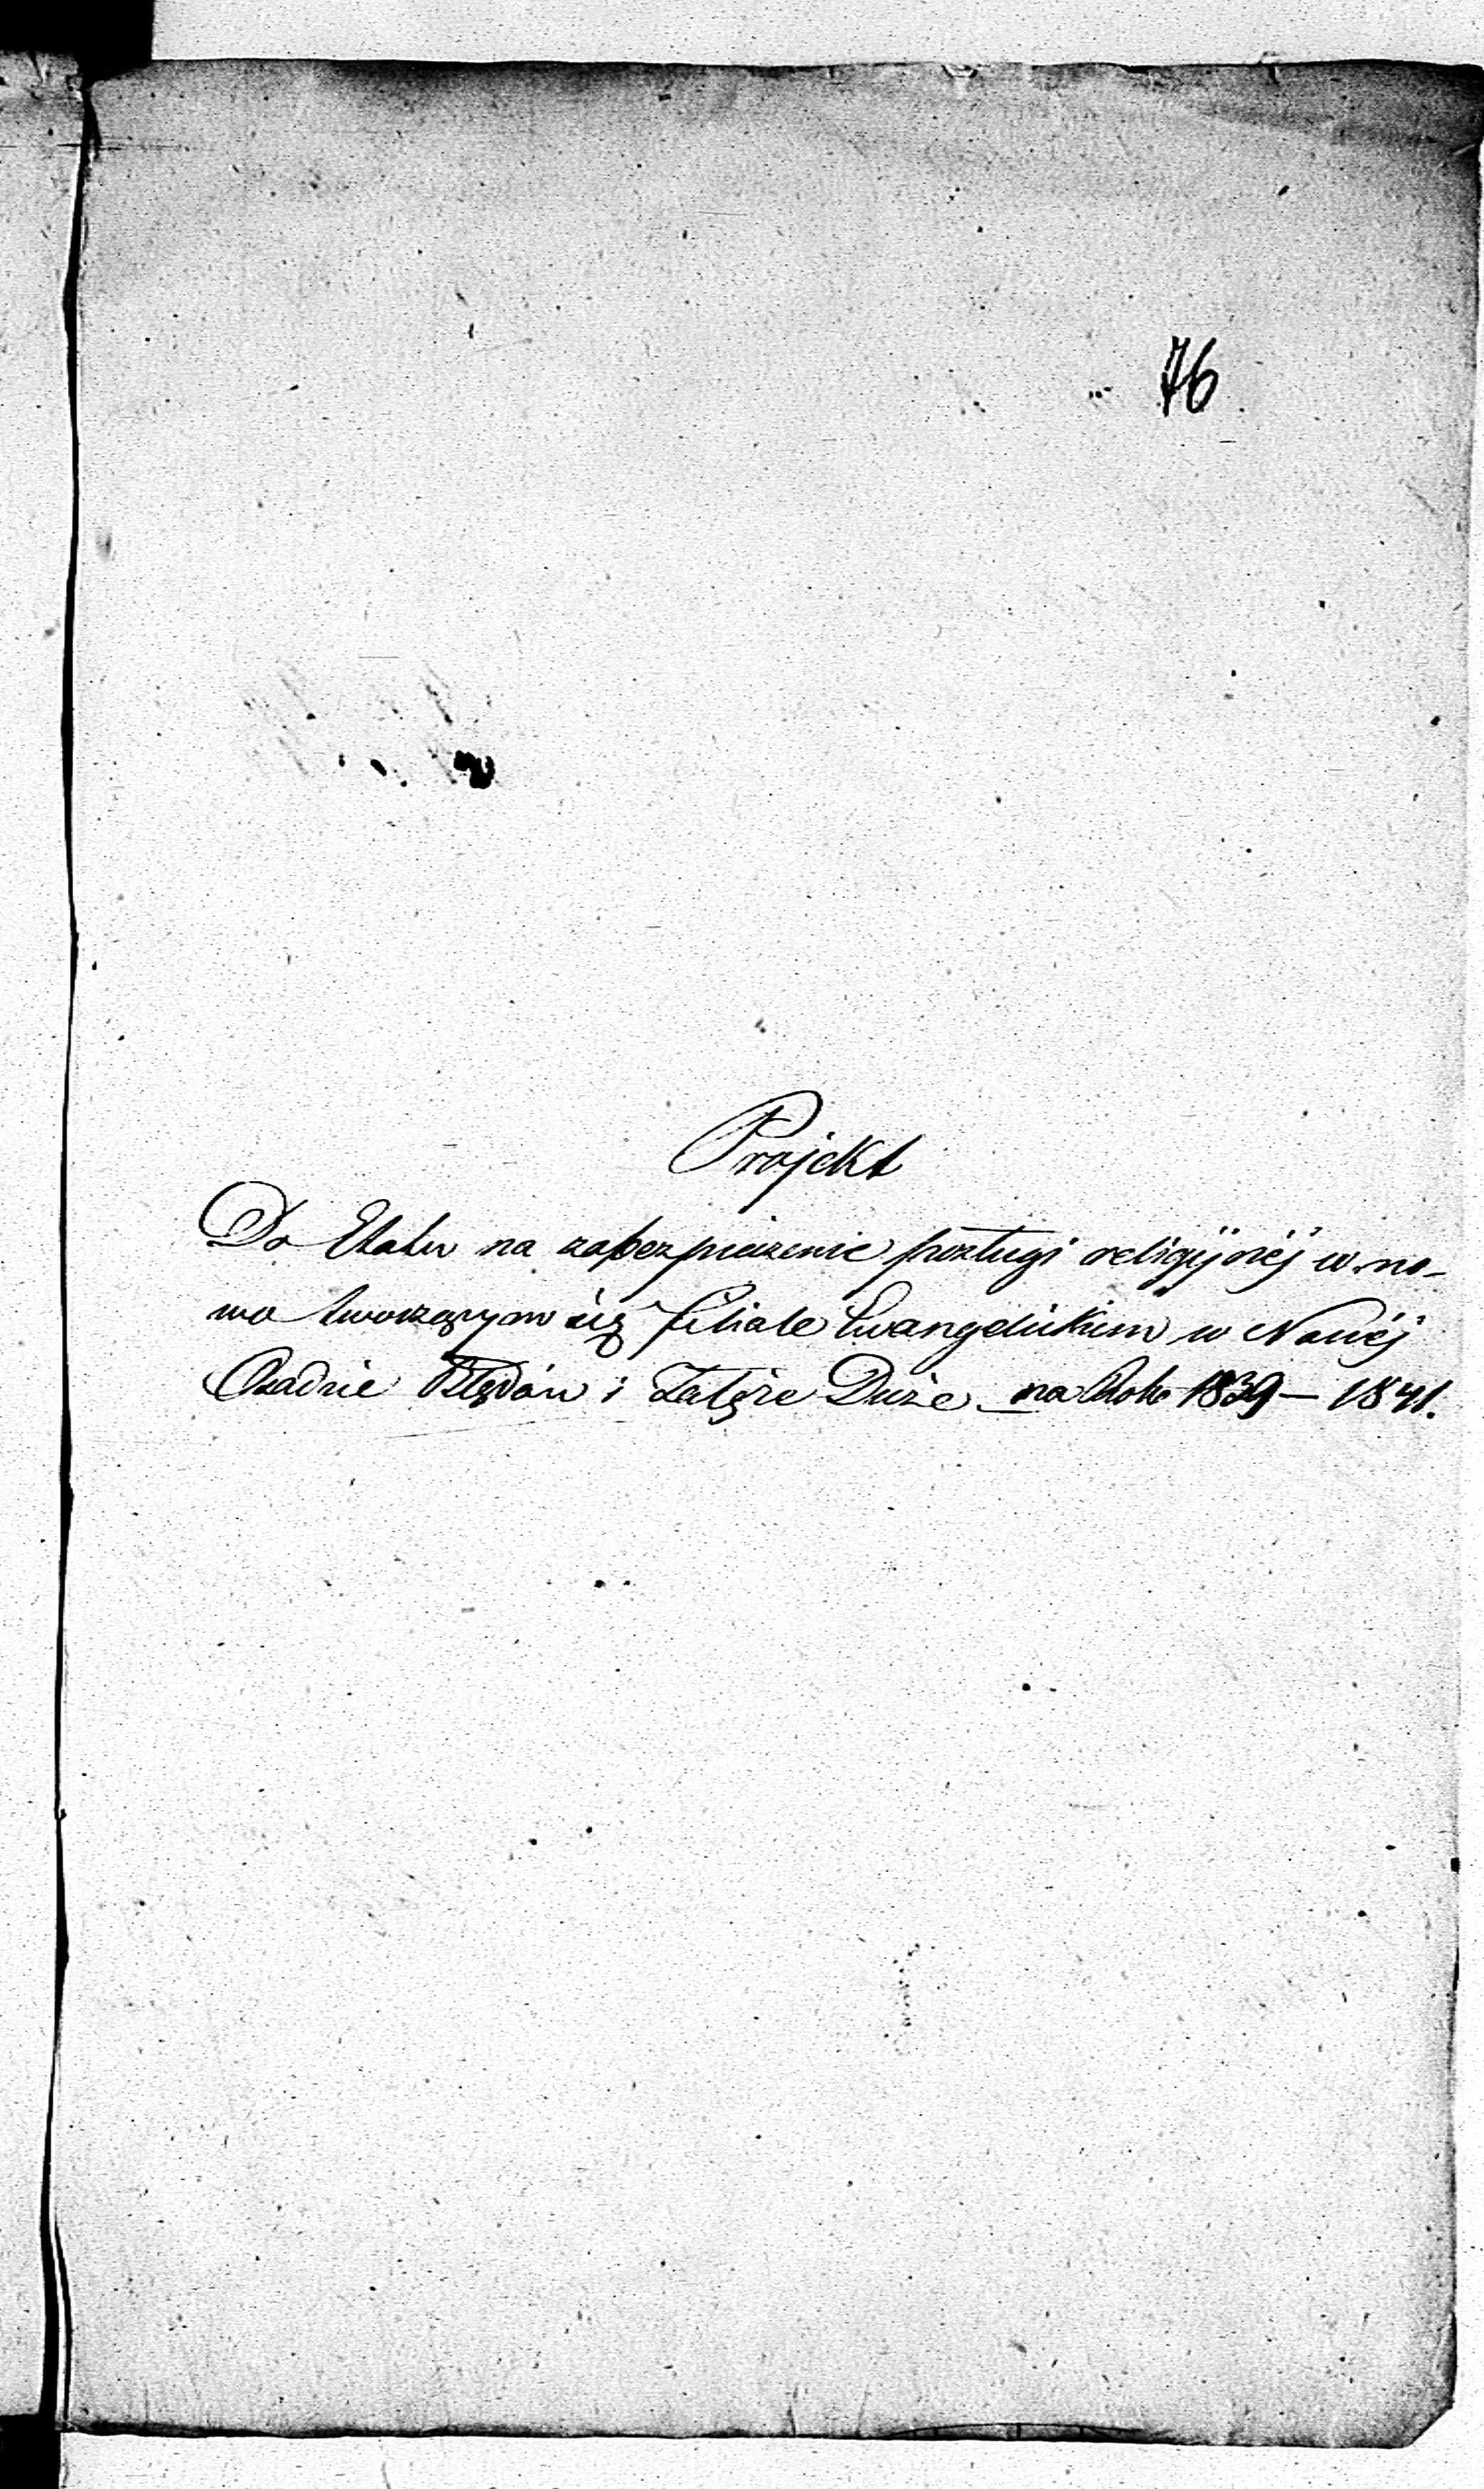 76
Projekt
Do Etatu na zabezpieczenie posługi religijnéj w no-
wo tworzącym się filiale Ewangelickim w Nowéj
Osadzie Błędów i Załęże Duże na Roko 1839 – 1841.